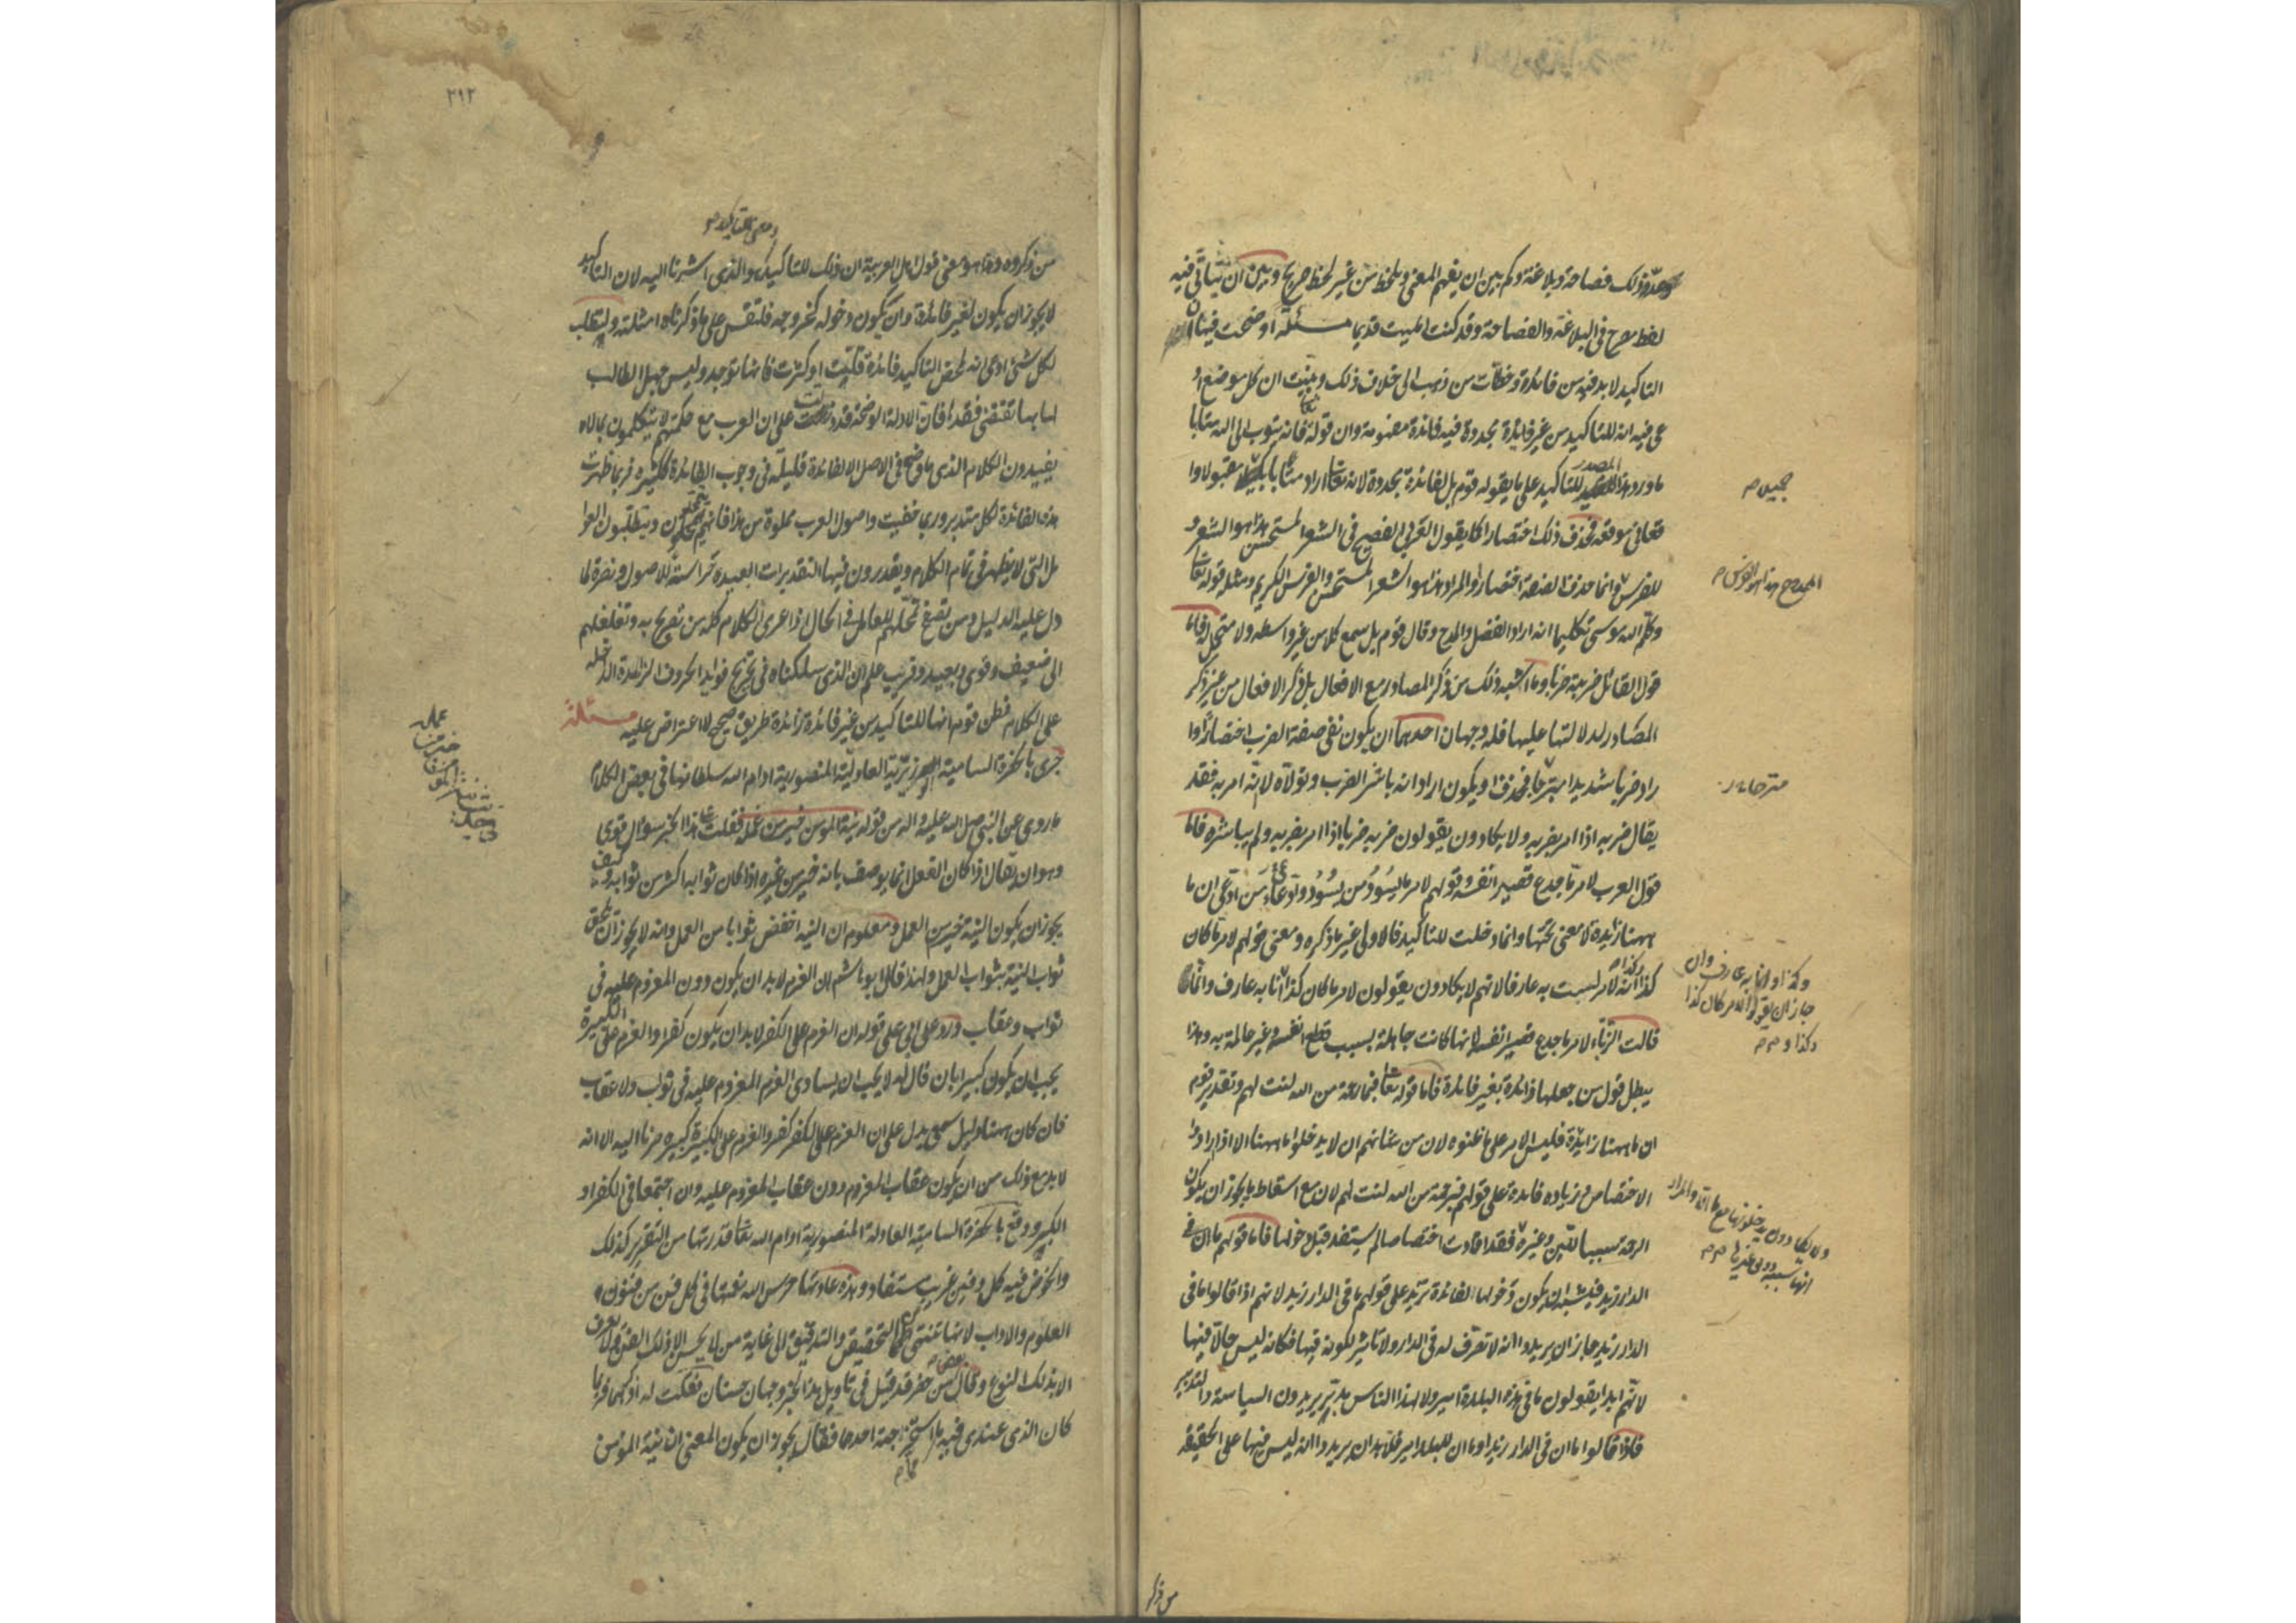 وعدّ ذلك فصاحة وبلاغة وكم بين ان يفهم المعنى ويلحظ من غير لحظ صريح وبين ان يتأتى فيه
لفظ مصرح في البلاغة والفصاحة وقد كنت امليت قديما مسئلة اوضحت فيها ان
التاكيد لابد فيه من فائدة وخطّأت من ذهب الى خلاف ذلك وبيّنت ان كل موضع اد
عى فيه انه للتاكيد من غير فائدة مجددة فيه فائدة مفهومة وان قوله تعالى فانه يتوب الى الله متابا
ما ورد هذا المصدر للتاكيد على ما يقوله قوم بل لفائدة مجددة لانه تعالى اراد متابا جميلا مقبولا وا
جميل م
قعا في موقعه فحذف ذلك اختصارا كما يقول العربي الفصيح في الشعر المستحسن هذا هو الشعر و
الممدوح هذا هو الفرس م
للفرس وانما حذف الصفة اختصارا والمراد هذا هو الشعر المستحسن والفرس الكريم ومثله قوله تعالى
وكلّم الله موسى تكليما انه اراد الفضل والمدح وقال قوم بل سمع كلامه من غير واسطة ولا متحمل له فاما
قول القائل ضربته ضربا وما اشبه ذلك من ذكر المصادر مع الافعال بل ذكر الافعال من غير ذكر
المصادر لدلالتها عليها فله وجهان احدهما ان يكون نفى صفة الضرب اختصارا وا
راد ضربا شديدا مبرحا فحذف او يكون اراد انه باشر الضرب وتولّاه لانّه امر به فقد
يقال ضربه اذا امر بضربه ولا يكادون يقولون ضربه ضربا اذا امر بضربه ولم يباشره فاما
قول العرب لامر ما جدع قصير انفه وقولهم لامر ما يسوّد من يسود وادّعاء من ادّعى ان ما
ههنا زايدة لا معنى تحتها وانما دخلت للتاكيد فالاولى غير ما ذكره ومعنى قولهم لامر ما كان
كذا انّه لامر لست به عارفا لانهم لا يكادون يقولون لامر ما كان كذا وكذا انا به عارف وانما
وكذا وانا به عارف وان
جاز ان يقولوا لامر كان كذا
وكذا وهم م
قالت الزبّاء لامر ما جدع قصير انفه لانها كانت جاهلة بسبب قطع انفه وغير عالمة به وهذا
يبطل قول من جعلها زائدة بغير فائدة فاما قوله تعالى فبما رحمة من الله لنت لهم وتقدير قوم
ان ما ههنا زايدة فليس الامر على ما ظنوه لان من شانهم ان لا يدخلوا ما ههنا الا اذا ارادوا
الاختصاص وزيادة فائدة على قولهم فبرحمة من الله لنت لهم لان مع اسقاط ما يجوز ان يكون
الرحمة سببا للّين وغيره فقد افادت اختصاصا لم يستفد قبل دخولها فاما قولهم ما ان في
ولا يكادون يدخلونها مع ما الا والمراد
انها سببه دون غيرها م م
الدار زيد فيشبه ان يكون دخولها لفائدة تزيد على قولهم ما في الدار زيد لانهم اذا قالوا ما في
الدار زيد جاز ان يريدوا انه لا تصرّف له في الدار ولا تاثير لكونه فيها فكانه ليس حالّا فيها
لانّهم ابدا يقولون ما في هذه البلدة امير ولا لهذا الناس مدبّر يريدون السياسة والتدبير
فاذا قالوا ما ان في الدار زيد او ما ان للبلد امير فلابد ان يريدوا انه ليس فيها على الحقيقة
من ذكر
٢١٢
ومعنى التاكيد م
من ذكروه وما هو معنى قول اهل العربية ان ذلك للتاكيد هو الذى اشرنا اليه لان التاكيد
لا يجوز ان يكون لغير فائدة وان يكون دخوله كخروجه فلتقس على ما ذكرناه امثلته وليتطلب
لكل شئ ادعى انه لمحض التاكيد فائدة قلّت او كثرت فانها توجد وليس جهل الطالب
لها بها تقتضى فقدا فان الادلة الواضحة قد دلت على ان العرب مع حكمتهم لا يتكلمون بما لا
يفيد وان الكلام الذى ما وضع في الاصل الا لفائدة قليله في وجوب الفائدة ككثيره فربما ظهرت
هذه الفائدة لكل متدبر وربما خفيت واصول العرب مملوة من هذا فانهم يتمحلون ويتطلبون العوا
مل التى لا يظهر في تمام الكلام ويقدرون فيها التقديرات البعيدة حراسة للاصول ونصرة لما
دل عليه الدليل ومن تصفح تمحّلهم للعامل في الحال اذا عرى الكلام كله من تصريح به وتغلغلهم
الى ضعيف وقوى وبعيد وقريب علم ان الذى سلكناه في تخريج فوايد الحروف الزائدة الداخلة
على الكلام فظن قوم انها للتاكيد من غير فائدة زائدة طريق صحيح لا اعتراض عليه مسئلة
جرى بالحضرة السامية الوزيرية العادلية المنصورية ادام الله سلطانها في بعض الكلام
ما روى عن النبى صلى الله عليه واله من قوله نية المؤمن خير من عمله فقلت على هذا الخبر سؤال قوى
وهو ان يقال اذا كان الفعل انما يوصف بانه خير من غيره اذا كان ثوابه اكثر من ثوابه وكيف
يجوز ان يكون النية خير من العمل ومعلوم ان النية اخفض ثوابا من العمل وانه لا يجوز ان يلحق
ثواب النية بثواب العمل ولهذا قال ابو هاشم ان العزم لابد ان يكون دون المعزوم عليه في
ثواب وعقاب ورد على ابى على قوله ان العزم على الكفر لابد ان يكون كفرا والعزم على الكبيرة
يجب ان يكون كبيرا بان قال له لا يجب ان يساوى العزم المعزوم عليه في ثواب ولا عقاب
فان كان ههنا دليل سمعى يدل على ان العزم على الكفر كفر والعزم على الكبيرة كبيرة صرنا اليه الا انه
لابد مع ذلك من ان يكون عقاب العزم دون عقاب المعزوم عليه وان اجتمعا في الكفر او
الكبير ووقع بالحضرة السامية العادلة المنصورية ادام الله تعالى قدرتها من التقرير كذلك
والخوض فيه كل دقيق غريب مستفاد وهذه عادتها حرس الله نعمتها في كل فن من فنون
العلوم والاداب لانها تنتهى من التحقيق والتدقيق الى غاية من لا يحسن الا ذلك الفن ولا يعرف
الا بذلك النوع وقال بعض من حضر قد قيل في تاويل هذا الخبر وجهان حسنان فقلت له اذكرهما فربما
كان الذى عندى فيه مما استخرجته احدهما فقال يجوز ان يكون المعنى ان نية المؤمن